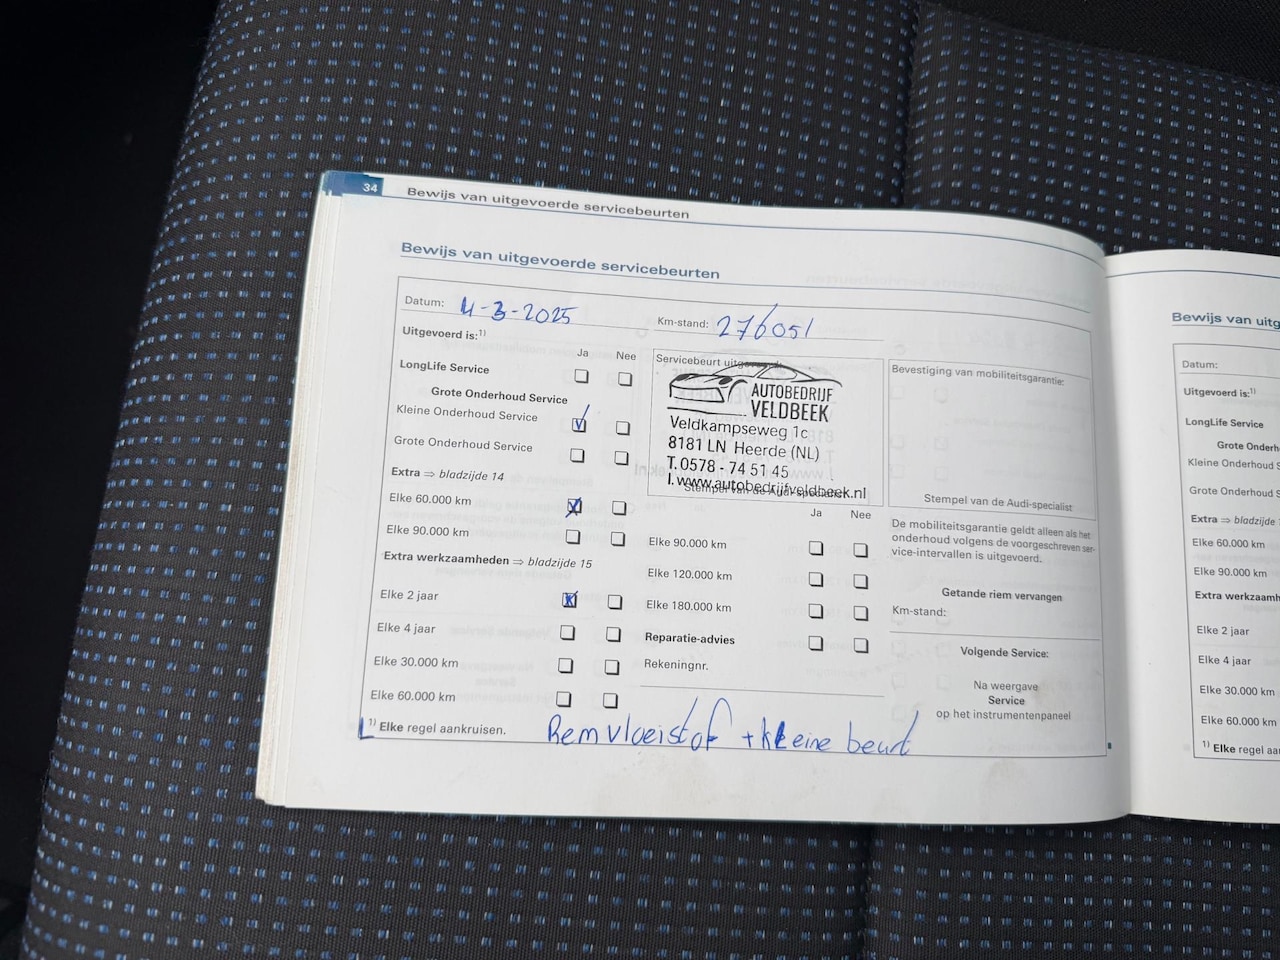 34
Bewijs van uitgevoerde servicebeurten
Bewijs van uitgevoerde servicebeurten
Datum: 4-3-2025
Km-stand: 276051
Uitgevoerd is:1)
Ja Nee
LongLife Service
Grote Onderhoud Service
Kleine Onderhoud Service
Grote Onderhoud Service
Extra ⇒ bladzijde 14
Elke 60.000 km
Elke 90.000 km
Extra werkzaamheden ⇒ bladzijde 15
Elke 2 jaar
Elke 4 jaar
Elke 30.000 km
Elke 60.000 km
1) Elke regel aankruisen.
Remvloeistof + kleine beurt
Servicebeurt
AUTOBEDRIJF
VELDBEEK
Veldkampseweg 1c
8181 LN Heerde (NL)
T. 0578 - 74 51 45
I. www.autobedrijfveldbeek.nl
Stempel van de Audi-specialist
Ja Nee
Elke 90.000 km
Elke 120.000 km
Elke 180.000 km
Reparatie-advies
Rekeningnr.
Bevestiging van mobiliteitsgarantie:
Stempel van de Audi-specialist
De mobiliteitsgarantie geldt alleen als het
onderhoud volgens de voorgeschreven ser-
vice-intervallen is uitgevoerd.
Getande riem vervangen
Km-stand:
Volgende Service:
Na weergave
Service
op het instrumentenpaneel
Bewijs van uitg
Datum:
Uitgevoerd is:1)
LongLife Service
Grote Onderh
Kleine Onderhoud S
Grote Onderhoud S
Extra ⇒ bladzijde
Elke 60.000 km
Elke 90.000 km
Extra werkzaamh
Elke 2 jaar
Elke 4 jaar
Elke 30.000 km
Elke 60.000 km
1) Elke regel aa